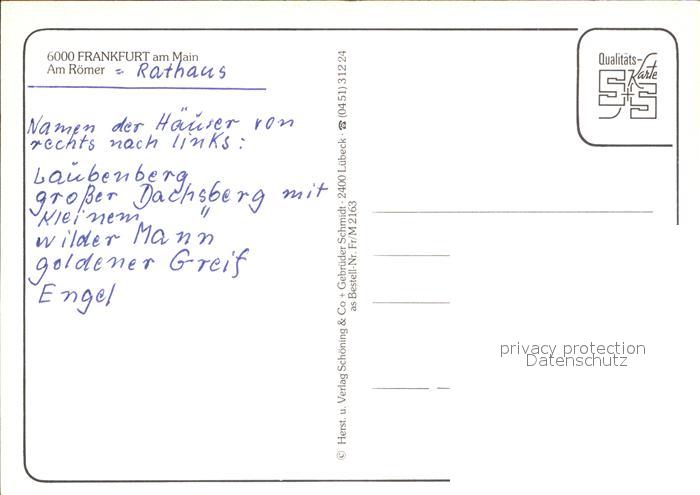 6000 FRANKFURT am Main
Am Römer = Rathaus
Namen der Häuser von
rechts nach links:
Laubenberg
großer Dachsberg mit
kleinem "
wilder Mann
goldener Greif
Engel
© Herst. u. Verlag Schöning & Co + Gebrüder Schmidt · 2400 Lübeck · ☎ (0451) 31224
as Bestell-Nr. Fr/M 2163
Qualitäts-
Karte
S+S
privacy protection
Datenschutz